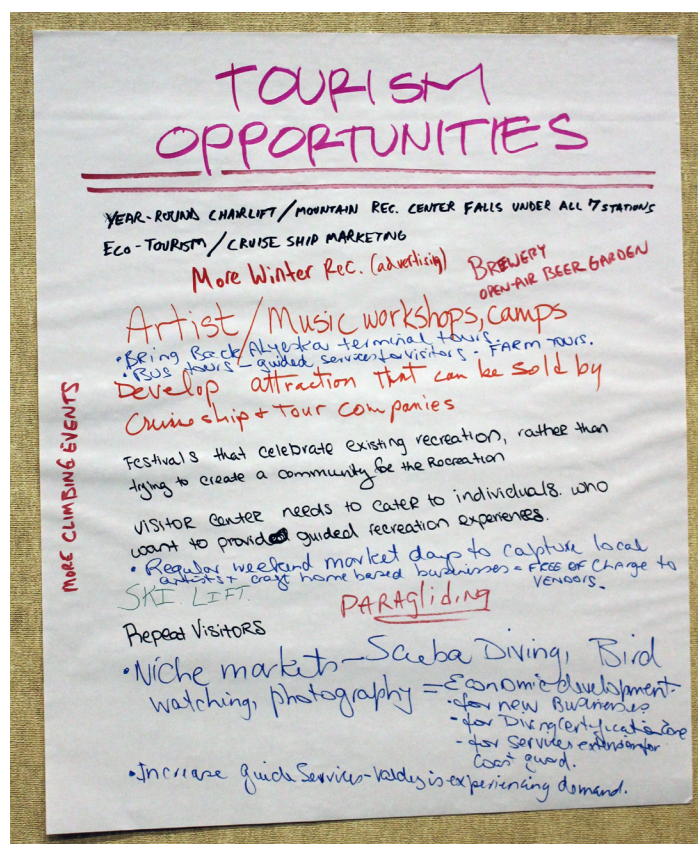 TOURISM
OPPORTUNITIES
YEAR-ROUND CHAIRLIFT/MOUNTAIN REC. CENTER FALLS UNDER ALL 7 STATIONS
ECO-TOURISM/CRUISE SHIP MARKETING
More Winter Rec. (advertising)
BREWERY
OPEN-AIR BEER GARDEN
Artist/Music workshops, camps
• Bring Back Alyeska terminal tours.
• BUS tours - guided services for visitors. - FARM TOURS.
Develop attraction that can be sold by
Cruise ship + Tour Companies
MORE CLIMBING EVENTS
Festivals that celebrate existing recreation, rather than
trying to create a community for the Recreation
VISITOR CENTER needs to cater to individuals. who
want to provide guided recreation experiences.
• Regular weekend market days to capture local
artists + craft home based businesses = FREE OF CHARGE to
VENDORS.
SKI LIFT.
PARAgliding
Repeat Visitors
• Niche markets - Scuba Diving, Bird
watching, photography = Economic development.
- for new Businesses
- for Diving certification
- for services extension for
Coast guard.
• Increase guide Services - Valdez is experiencing demand.